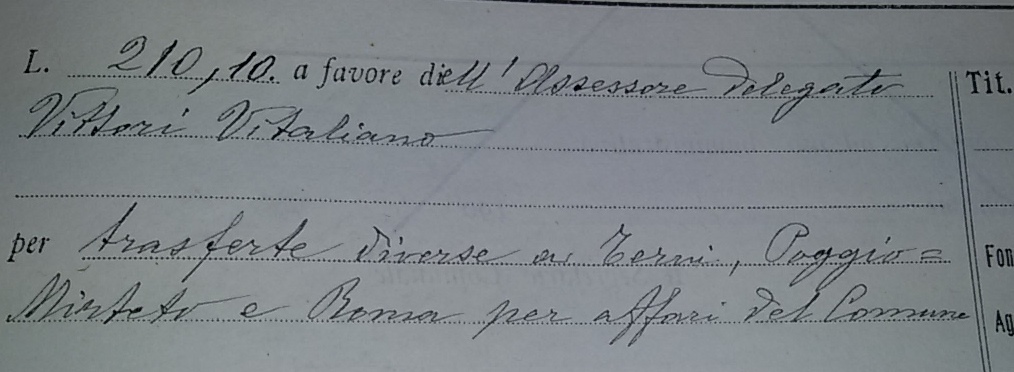 L. 210,10. a favore dell' Assessore Delegato
Vittori Vitaliano
per trasferte diverse a Terni, Poggio=
Mirteto e Roma per affari del Comune
Tit.
Fon
Ag